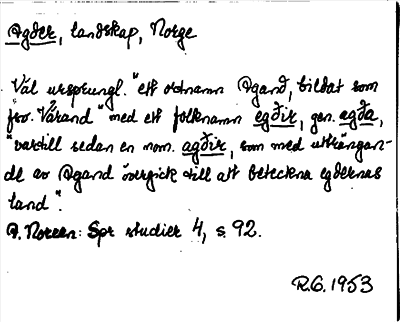 Agder, landskap, Norge
Väl ursprungl. "ett ortnamn Agand, bildat som
fsv. Värand" med ett folknamn egðir, gen. agða,
"vartill sedan en nom. agðir, som med utträngan-
de av Agand övergick till att beteckna egdernas
land".
A. Noreen: Spr studier 4, s. 92.
R.G. 1953